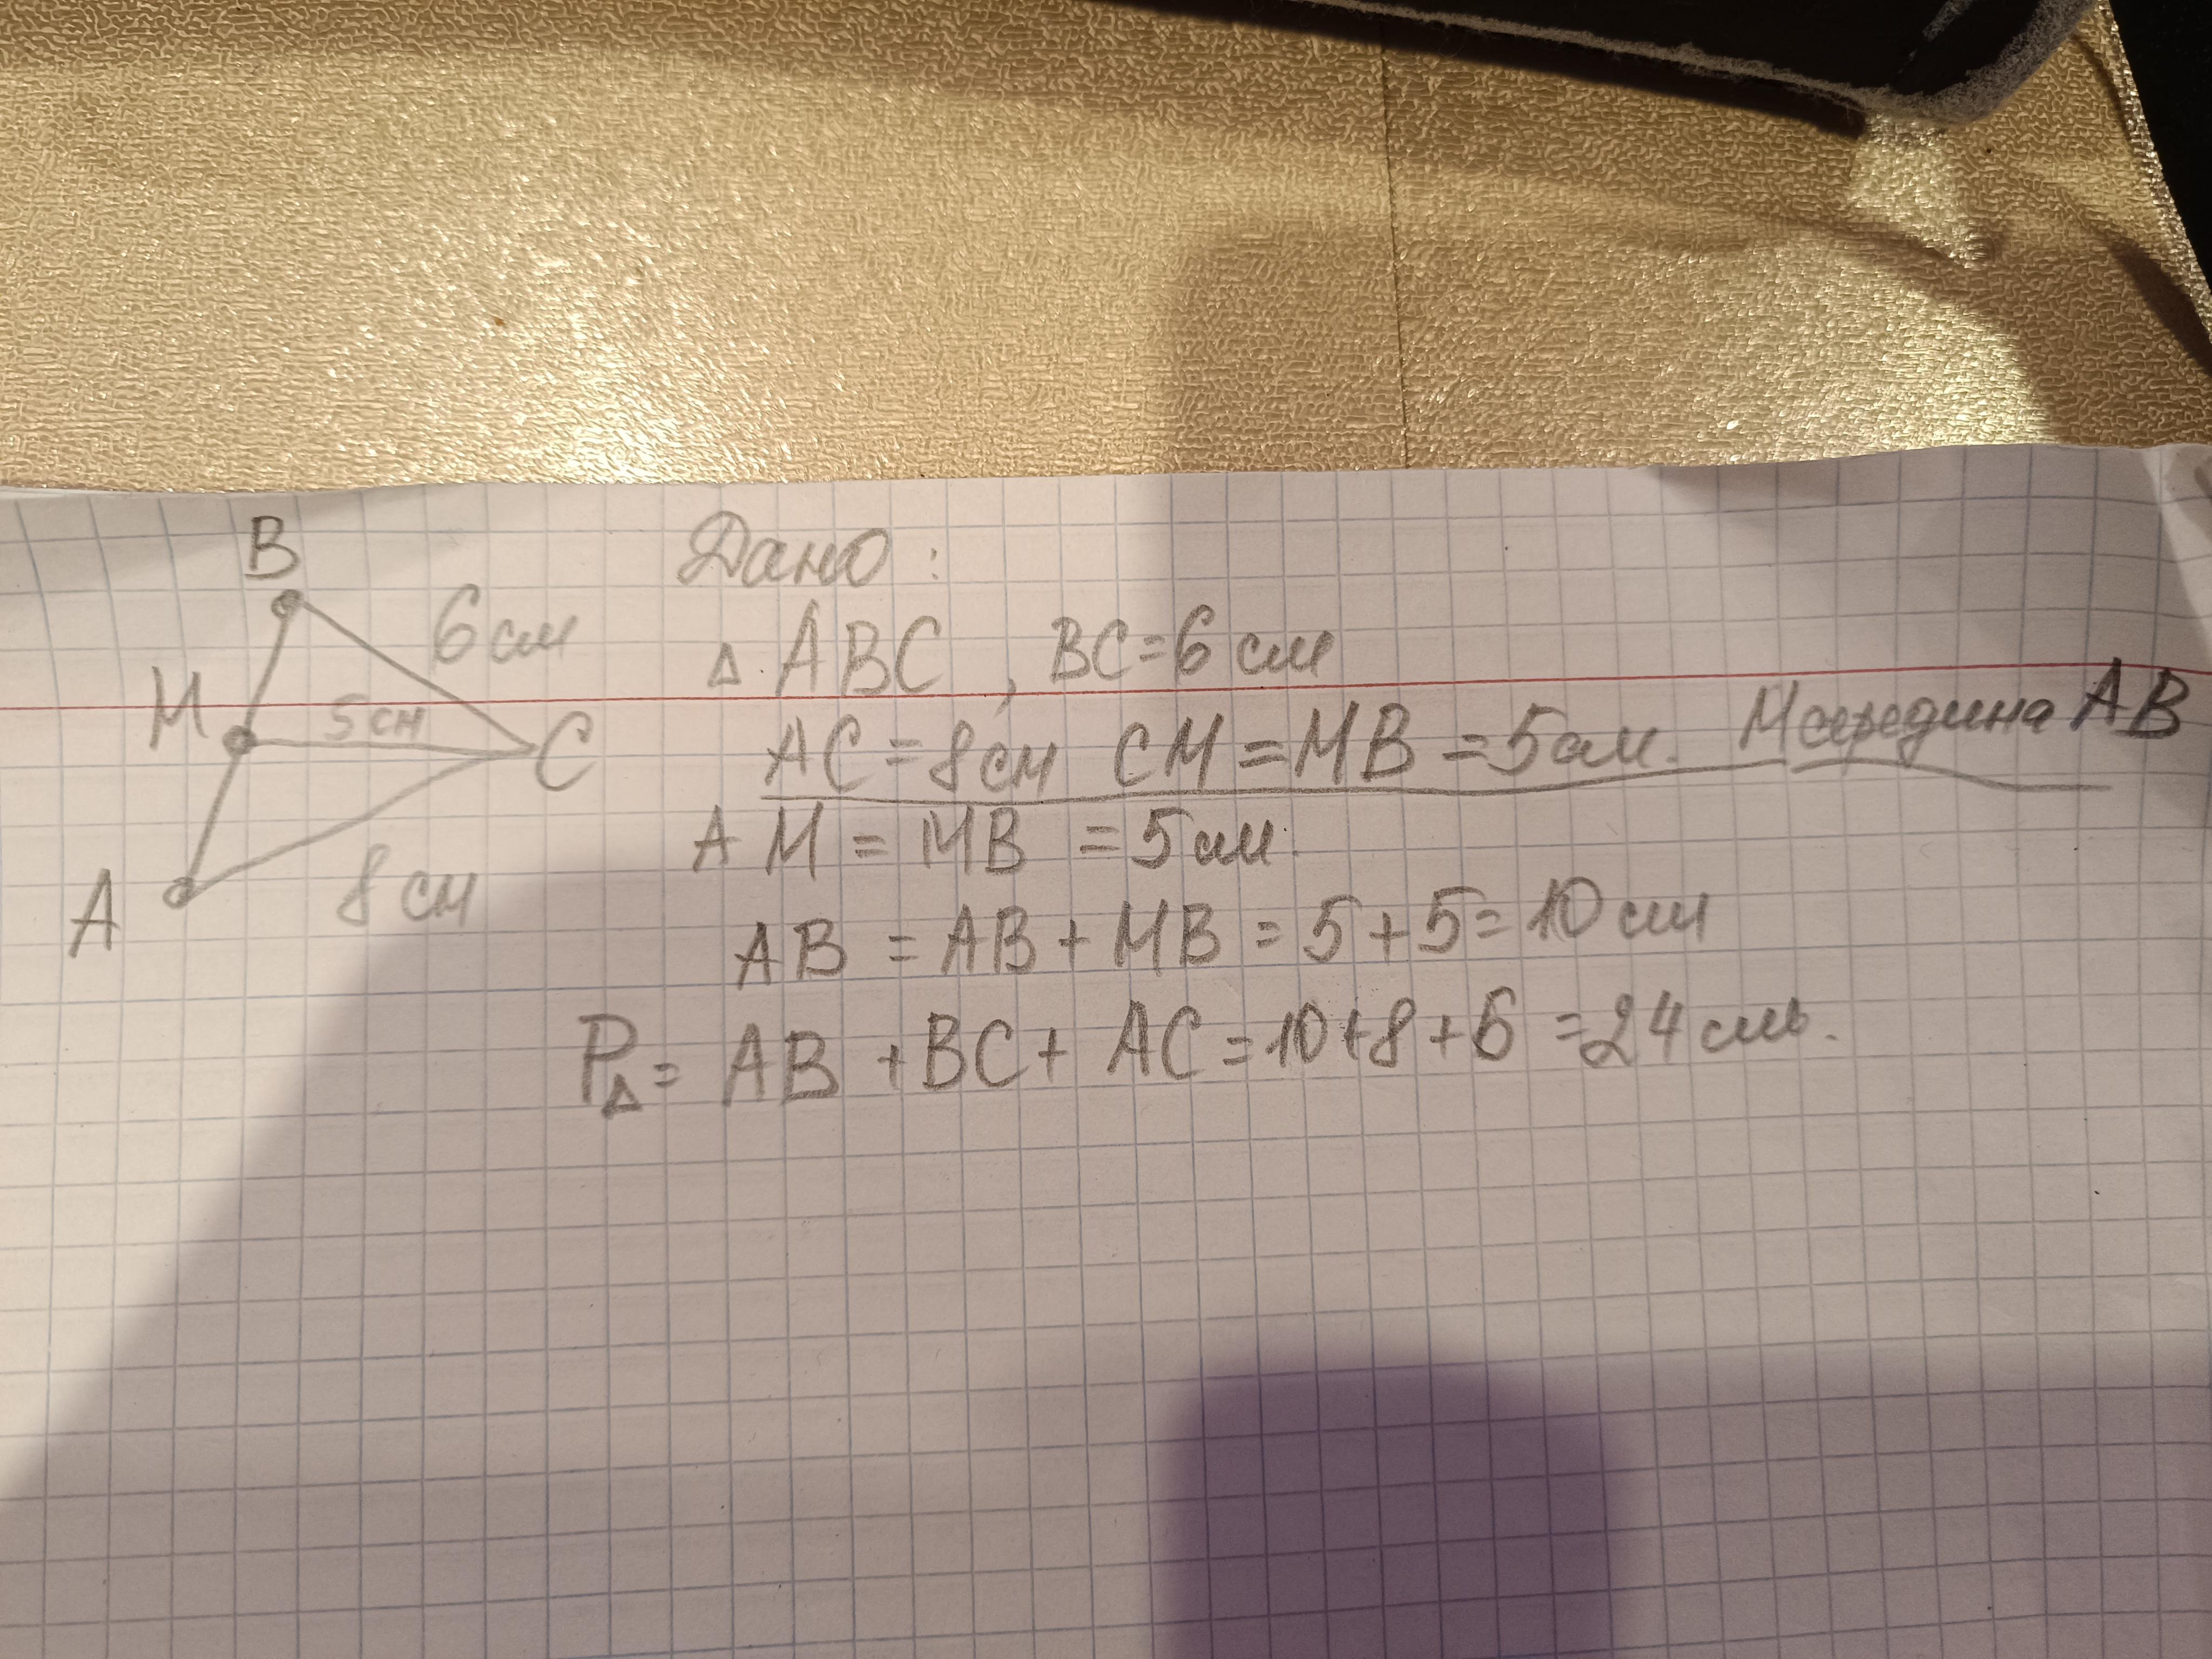 B
6 см
M
5 см
C
A
8 см
Дано:
△ ABC, BC=6 см
AC=8 см CM=MB=5 см. M середина AB
AM=MB=5 см.
AB=AB+MB=5+5=10 см
P△=AB+BC+AC=10+8+6=24 см.